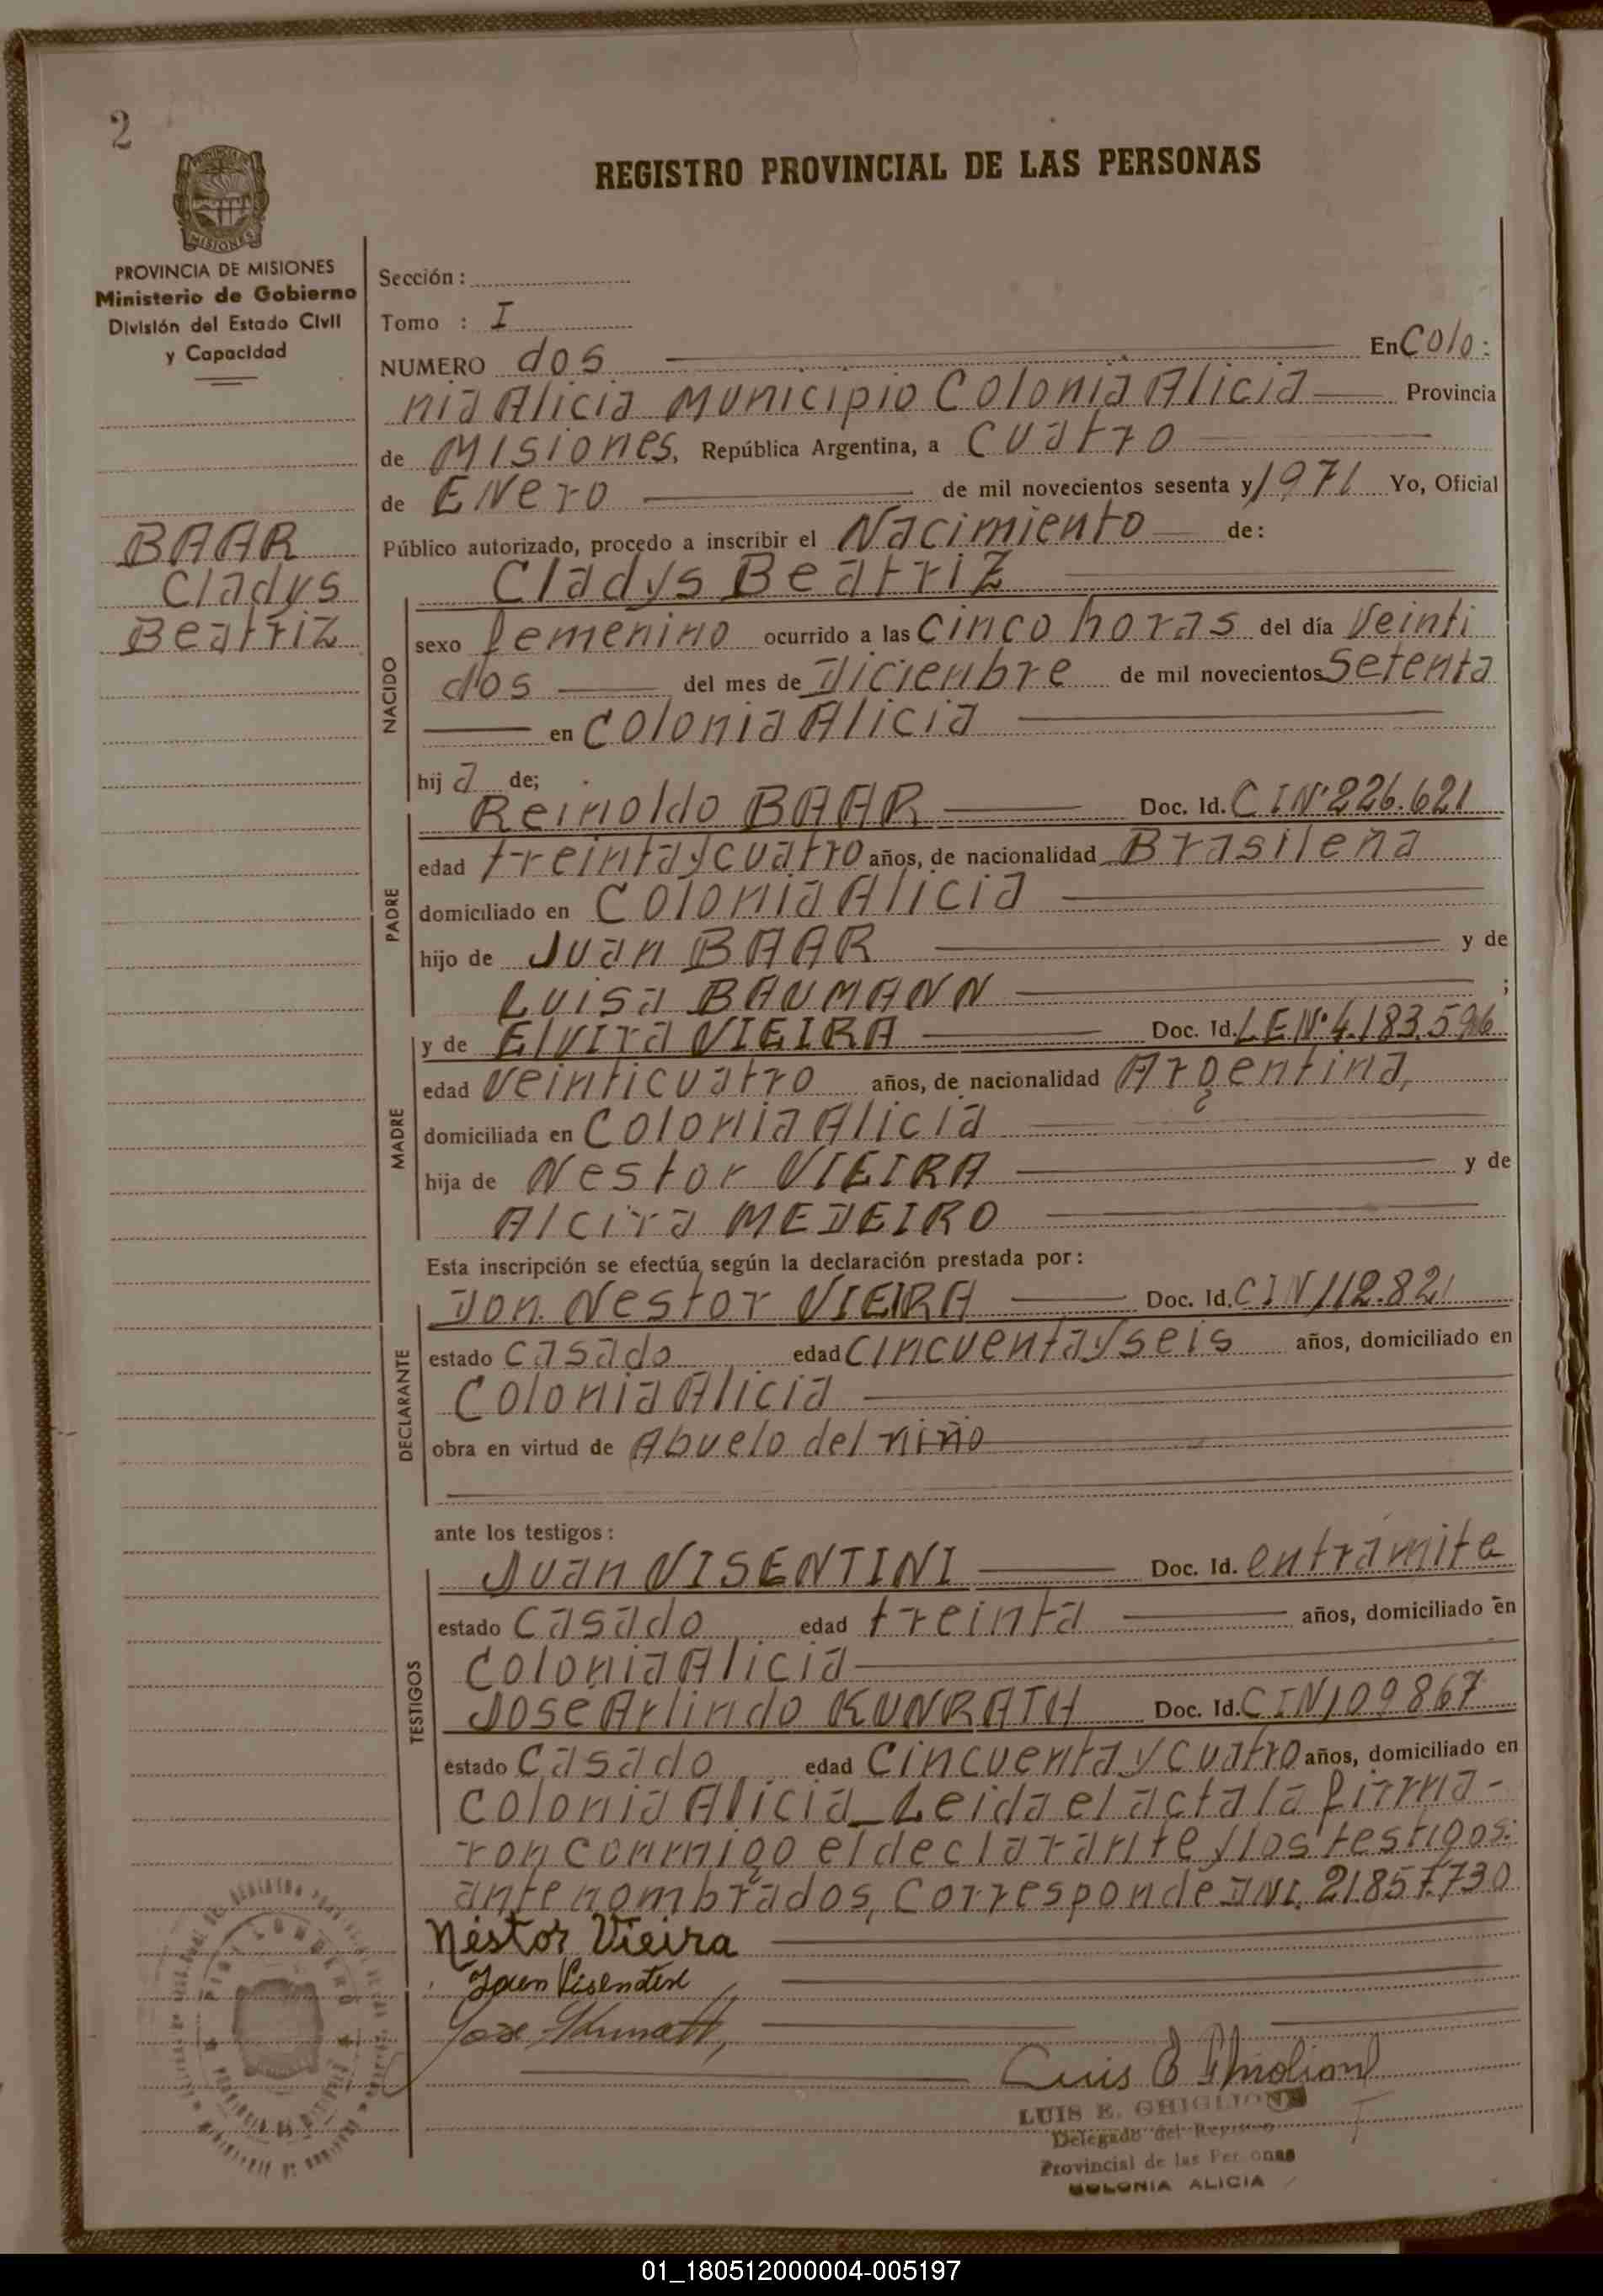 2
REGISTRO PROVINCIAL DE LAS PERSONAS
PROVINCIA DE MISIONES
Ministerio de Gobierno
División del Estado Civil
y Capacidad
BAAR
Cladys
Beatriz
Sección :
Tomo : I
NUMERO dos En Colo:
nia Alicia Municipio Colonia Alicia Provincia
de Misiones, República Argentina, a Cuatro
de Enero de mil novecientos sesenta y 1971 Yo, Oficial
Público autorizado, procedo a inscribir el Nacimiento de:
Cladys Beatriz
NACIDO
sexo femenino ocurrido a las Cinco horas del día Veinti
dos del mes de Diciembre de mil novecientos Setenta
en Colonia Alicia
hij a de;
PADRE
Reinoldo BAAR Doc. Id. C I Nº 226.621
edad treinta y cuatro años, de nacionalidad Brasileña
domiciliado en Colonia Alicia
hijo de Juan BAAR y de
Luisa BAUMANN ;
MADRE
y de Elvira VIEIRA Doc. Id. L E Nº 4.183.596
edad Veinticuatro años, de nacionalidad Argentina,
domiciliada en Colonia Alicia
hija de Nestor VIEIRA y de
Alcira MEDEIRO
Esta inscripción se efectúa según la declaración prestada por:
DECLARANTE
Don. Nestor VIEIRA Doc. Id. C I N 112.821
estado Casado edad Cincuenta y seis años, domiciliado en
Colonia Alicia
obra en virtud de Abuelo del niño
ante los testigos:
TESTIGOS
Juan VISENTINI Doc. Id. en tramite
estado Casado edad treinta años, domiciliado en
Colonia Alicia
Jose Arlindo KUNRATH Doc. Id. C I N 109867
estado Casado edad Cincuenta y cuatro años, domiciliado en
Colonia Alicia_Leida el acta la firma-
ron conmigo el declarante y los testigos:
ante nombrados, Corresponde DNI. 21.857.730
Néstor Vieira
Juan Visentini
Jose Kunrath
Luis E Ghiglione
LUIS E. GHIGLIONE
Delegado del Registro
Provincial de las Personas
COLONIA ALICIA
01_180512000004-005197